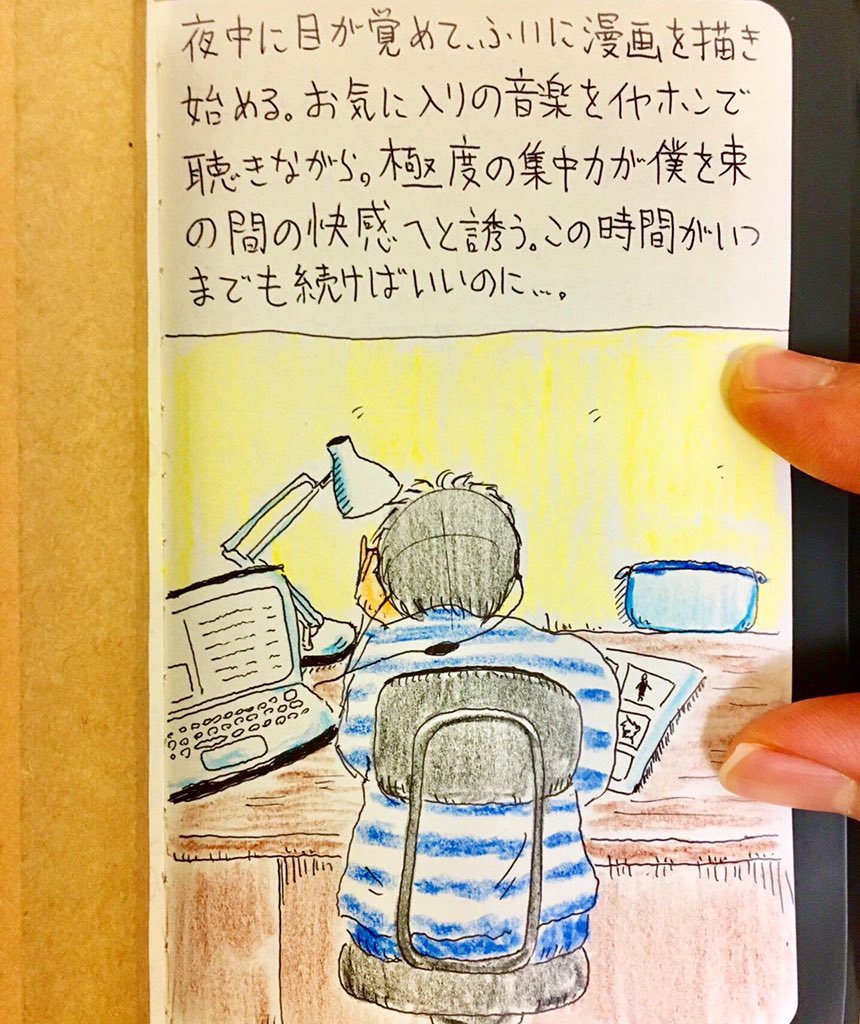 夜中に目が覚めて、ふいに漫画を描き
始める。お気に入りの音楽をイヤホンで
聴きながら。極度の集中力が僕を束
の間の快感へと誘う。この時間がいつ
までも続けばいいのに…。